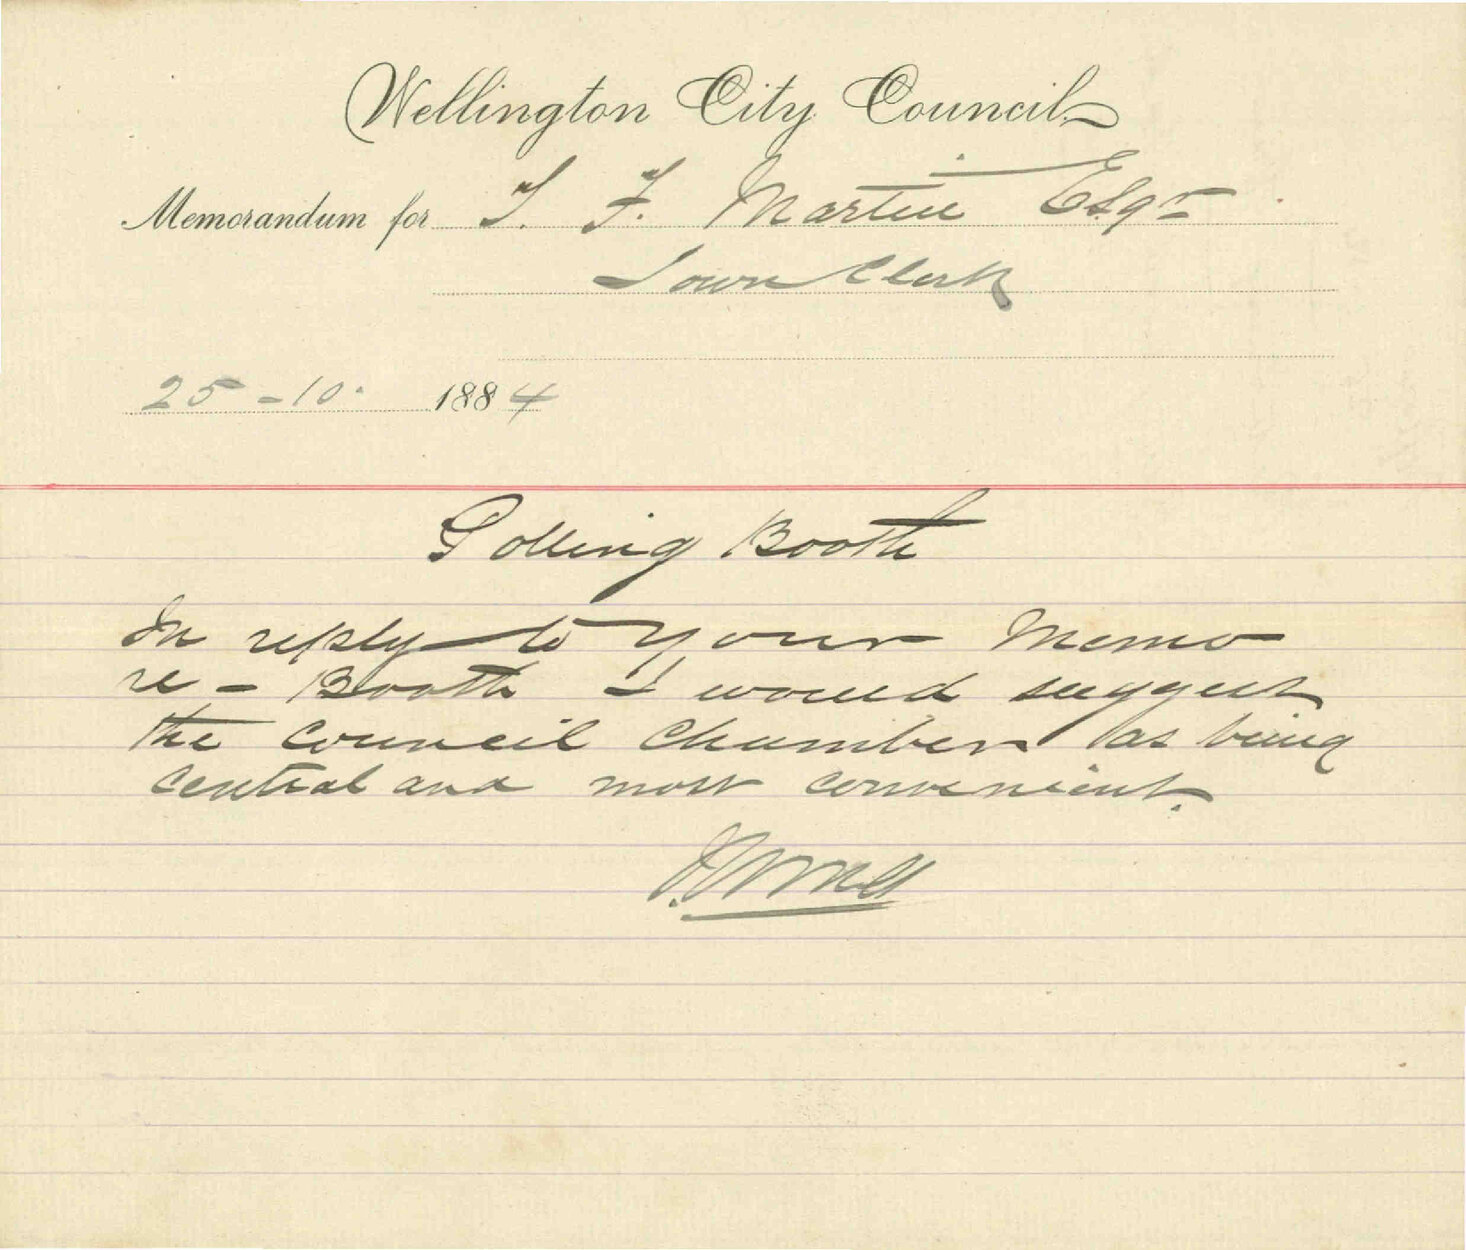 Wellington City Council
Memorandum for T. F. Martin Esqr
Town Clerk
25-10. 1884
Polling Booth
In reply to your Memo
re - Booth I would suggest
the Council Chamber as being
central and most convenient.